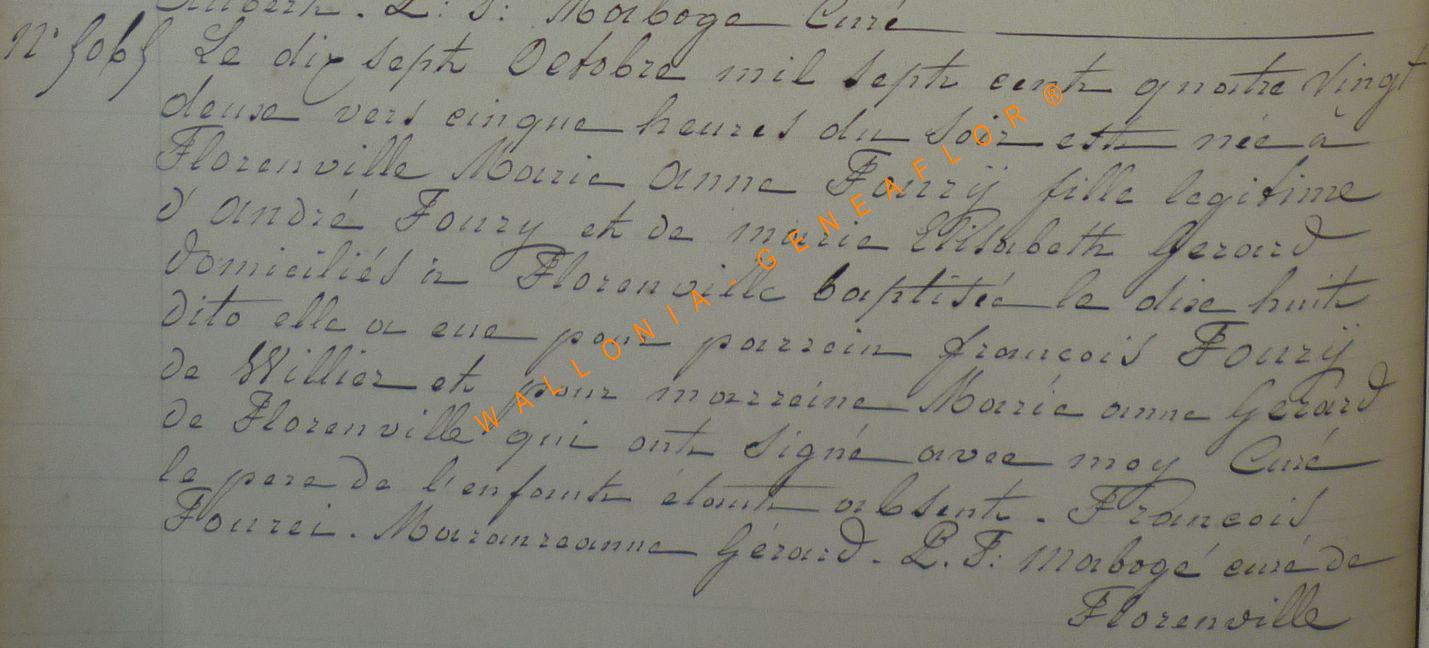 L: J: Maboge Curé
N° 5065 Le dix sept Octobre mil sept cent quatre vingt
deuse vers cinque heures du soir est née à
Florenville Marie anne Fourÿ fille legitime
d'andré Foury et de marie Elisabeth Gerard
domiciliés à Florenville baptisée le dixe huit
dito elle a eue pour parrein françois Fourÿ
de Willier et pour marreine Marie anne Gerard
de Florenville qui ont signé avec moy Curé
le pere de l'enfant étant absent. François
Fourei. Maranreanne Gérard. L. J: Mabogé curé de
Florenville
WALLONIA - GENEAFLOR ®